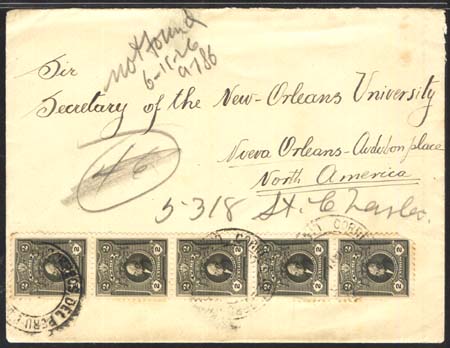 not found
6-11-26
a786
Sir
Secretary of the New-Orleans University
Nueva Orleans-Audubon place
North America
46
5318 St. Charles.
CORRE
DEL PERU
2 2 2 2 2